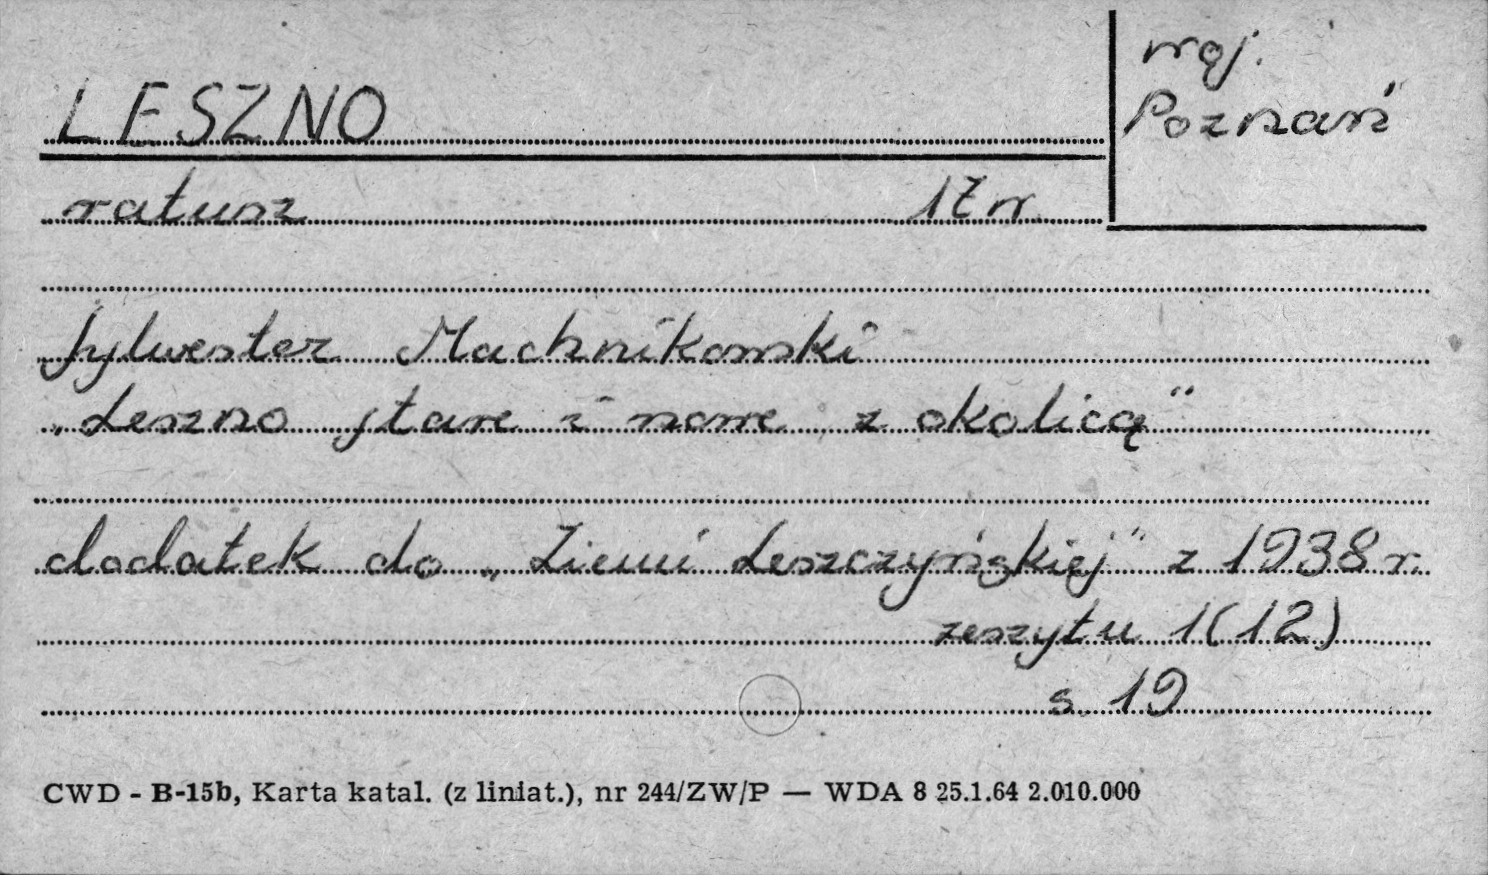 LESZNO
woj.
Poznań
ratusz 17 w.
Sylwester Machnikowski
„Leszno stare i nowe z okolicą"
dodatek do „Ziemi Leszczyńskiej" z 1938 r.
zeszytu 1(12)
s. 19
CWD - B-15b, Karta katal. (z liniat.), nr 244/ZW/P — WDA 8 25.1.64 2.010.000